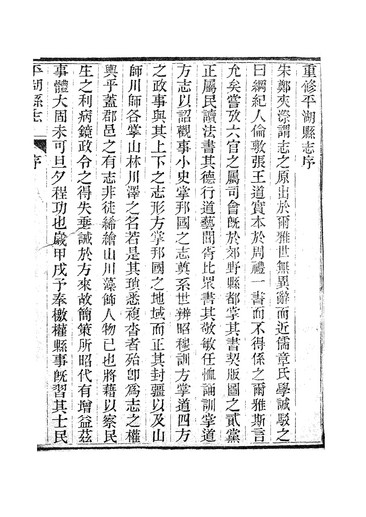 重修平湖縣志序
朱鄭夾漈謂志之原出於爾雅世無異辭而近儒章氏學誠駁之
曰綱紀人倫敷張王道實本於周禮一書而不得係之爾雅斯言
允矣嘗攷六官之屬司會旣於郊野縣都掌其書契版圖之貳黨
正屬民讀法書其德行道藝閭胥比眾書其敬敏任恤誦訓掌道
方志以詔觀事小史掌邦國之志奠系世辨昭穆訓方掌道四方
之政事與其上下之志形方掌邦國之地域而正其封疆以及山
師川師各掌山林川澤之名若是其瑣悉複沓者殆卽為志之權
輿乎蓋郡邑之有志非徒絺繪山川藻飾人物已也將藉以察民
生之利病鏡政令之得失垂誡於方來故簡策所昭代有增益茲
事體大固未可旦夕程功也歲甲戌予奉檄權縣事旣習其士民
平湖縣志
序